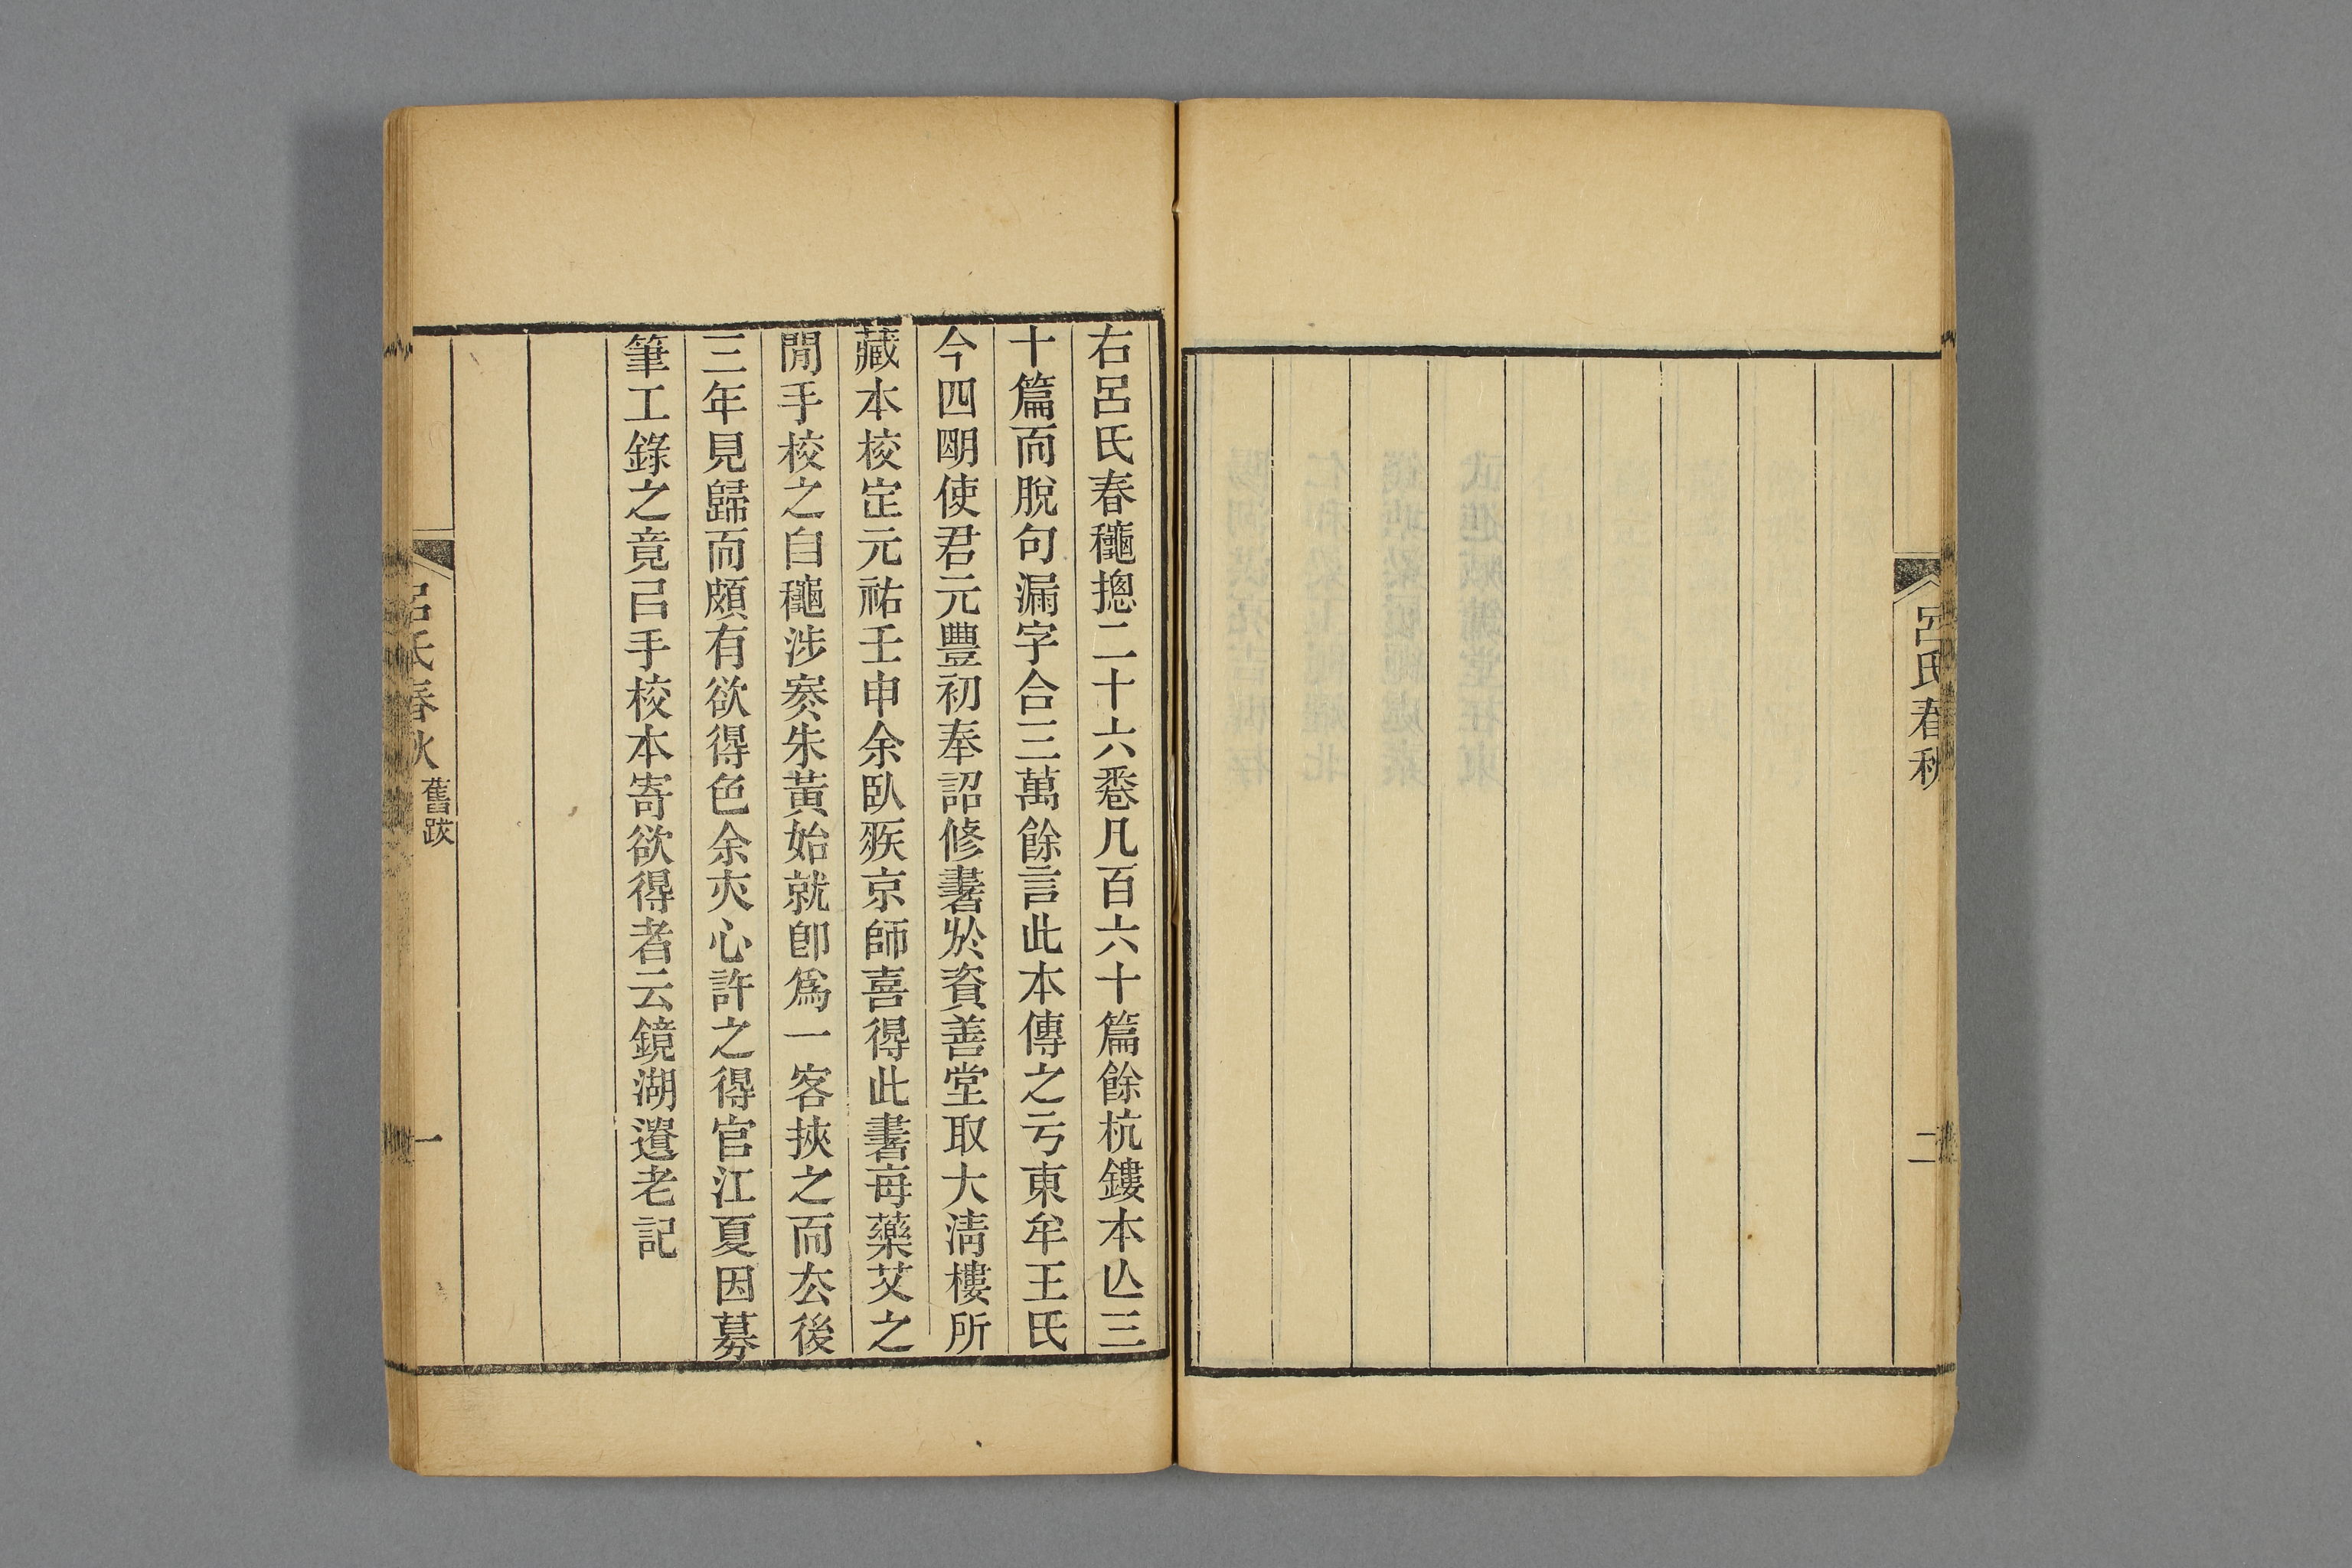 呂氏春秋
二
右呂氏春龝摠二十六卷凡百六十篇餘杭鏤本亾三
十篇而脫句漏字合三萬餘言此本傳之亏東牟王氏
今四朙使君元豐初奉詔修書於資善堂取大淸樓所
藏本校定元祐壬申余臥疾京師喜得此書每藥艾之
閒手校之自龝涉寒朱黃始就卽爲一客挾之而去後
三年見歸而頗有欲得色余亦心許之得官江夏因募
筆工錄之竟㠯手校本寄欲得者云鏡湖遺老記
呂氏春秋 舊跋
一